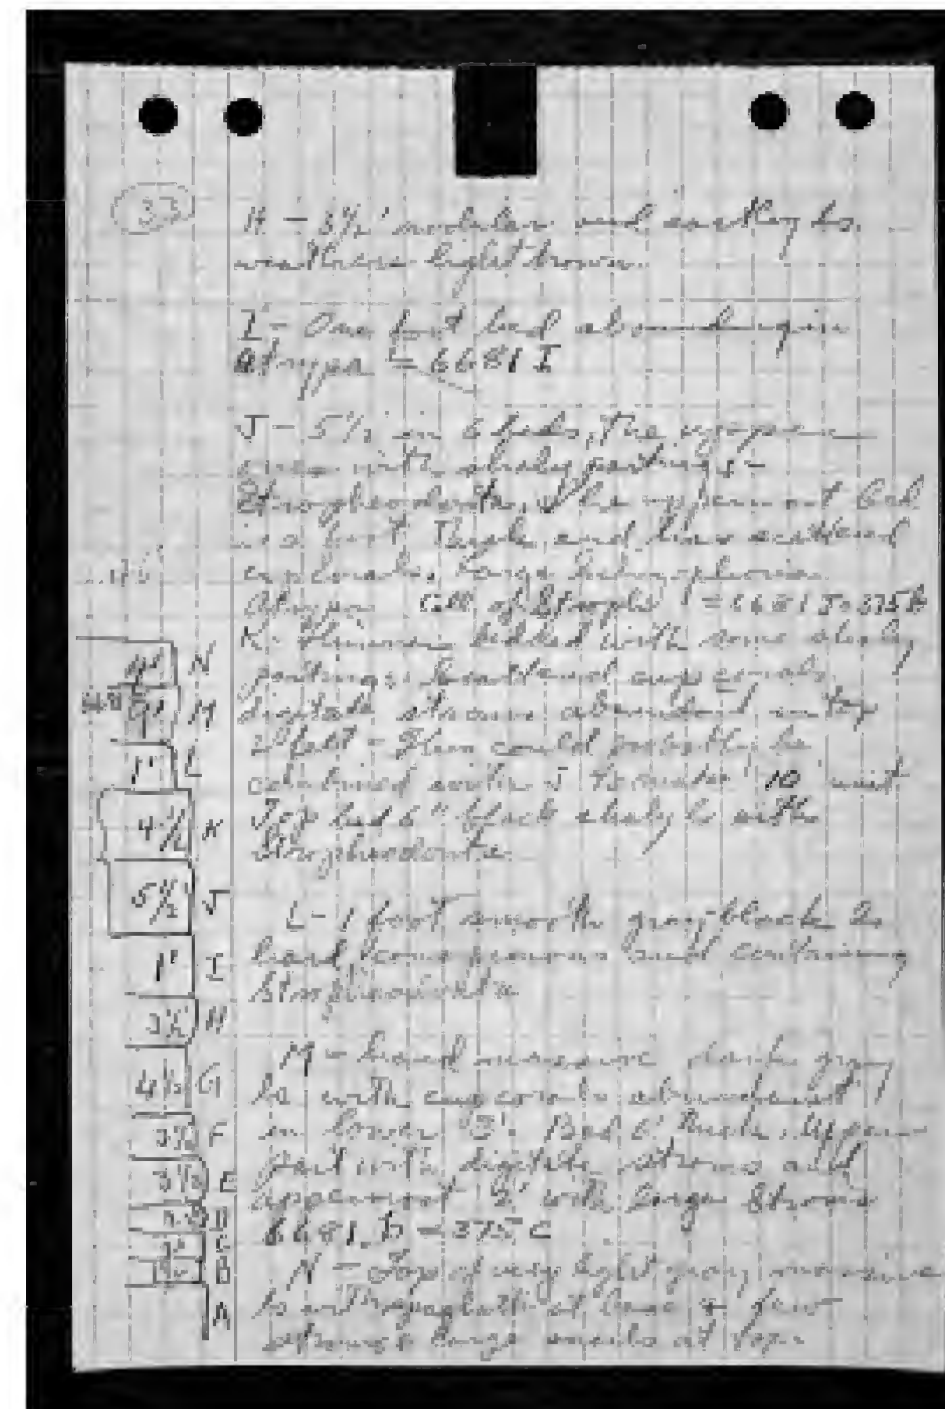 33
H - 3½' nodular and earthy ls.
weathers light brown.
I - One foot bed abounding in
Atrypa = 6681 I
J - 5½' in 6 beds, the upper
ones with shaly partings -
Stropheodonta, the uppermost bed
is a foot thick and has scattered
cup corals, large
Atrypa Coll. of Stroph. = 6681 J = 375
K - Thinner bedded with some shaly
partings. Scattered cup corals,
digitate stroms abundant in top
2 feet - This could probably be
combined with J to make 10' unit
Top bed 6" black shaly ls with
Stropheodonta
L - 1 foot smooth gray-black ls
hard bed containing
Stropheodonta
M - hard massive dark gray
ls with cup corals abundant
in lower 3'. Bed thick. Upper
part with digitate stroms and
uppermost 2' with large stroms
6681 = 375 C
N - Top of very light gray massive
ls with at base & few
stroms & large at top
4' N
9' M
1' L
4½ K
5½' J
1' I
3½ H
4½ G
3½ F
3½ E
D
C
B
A